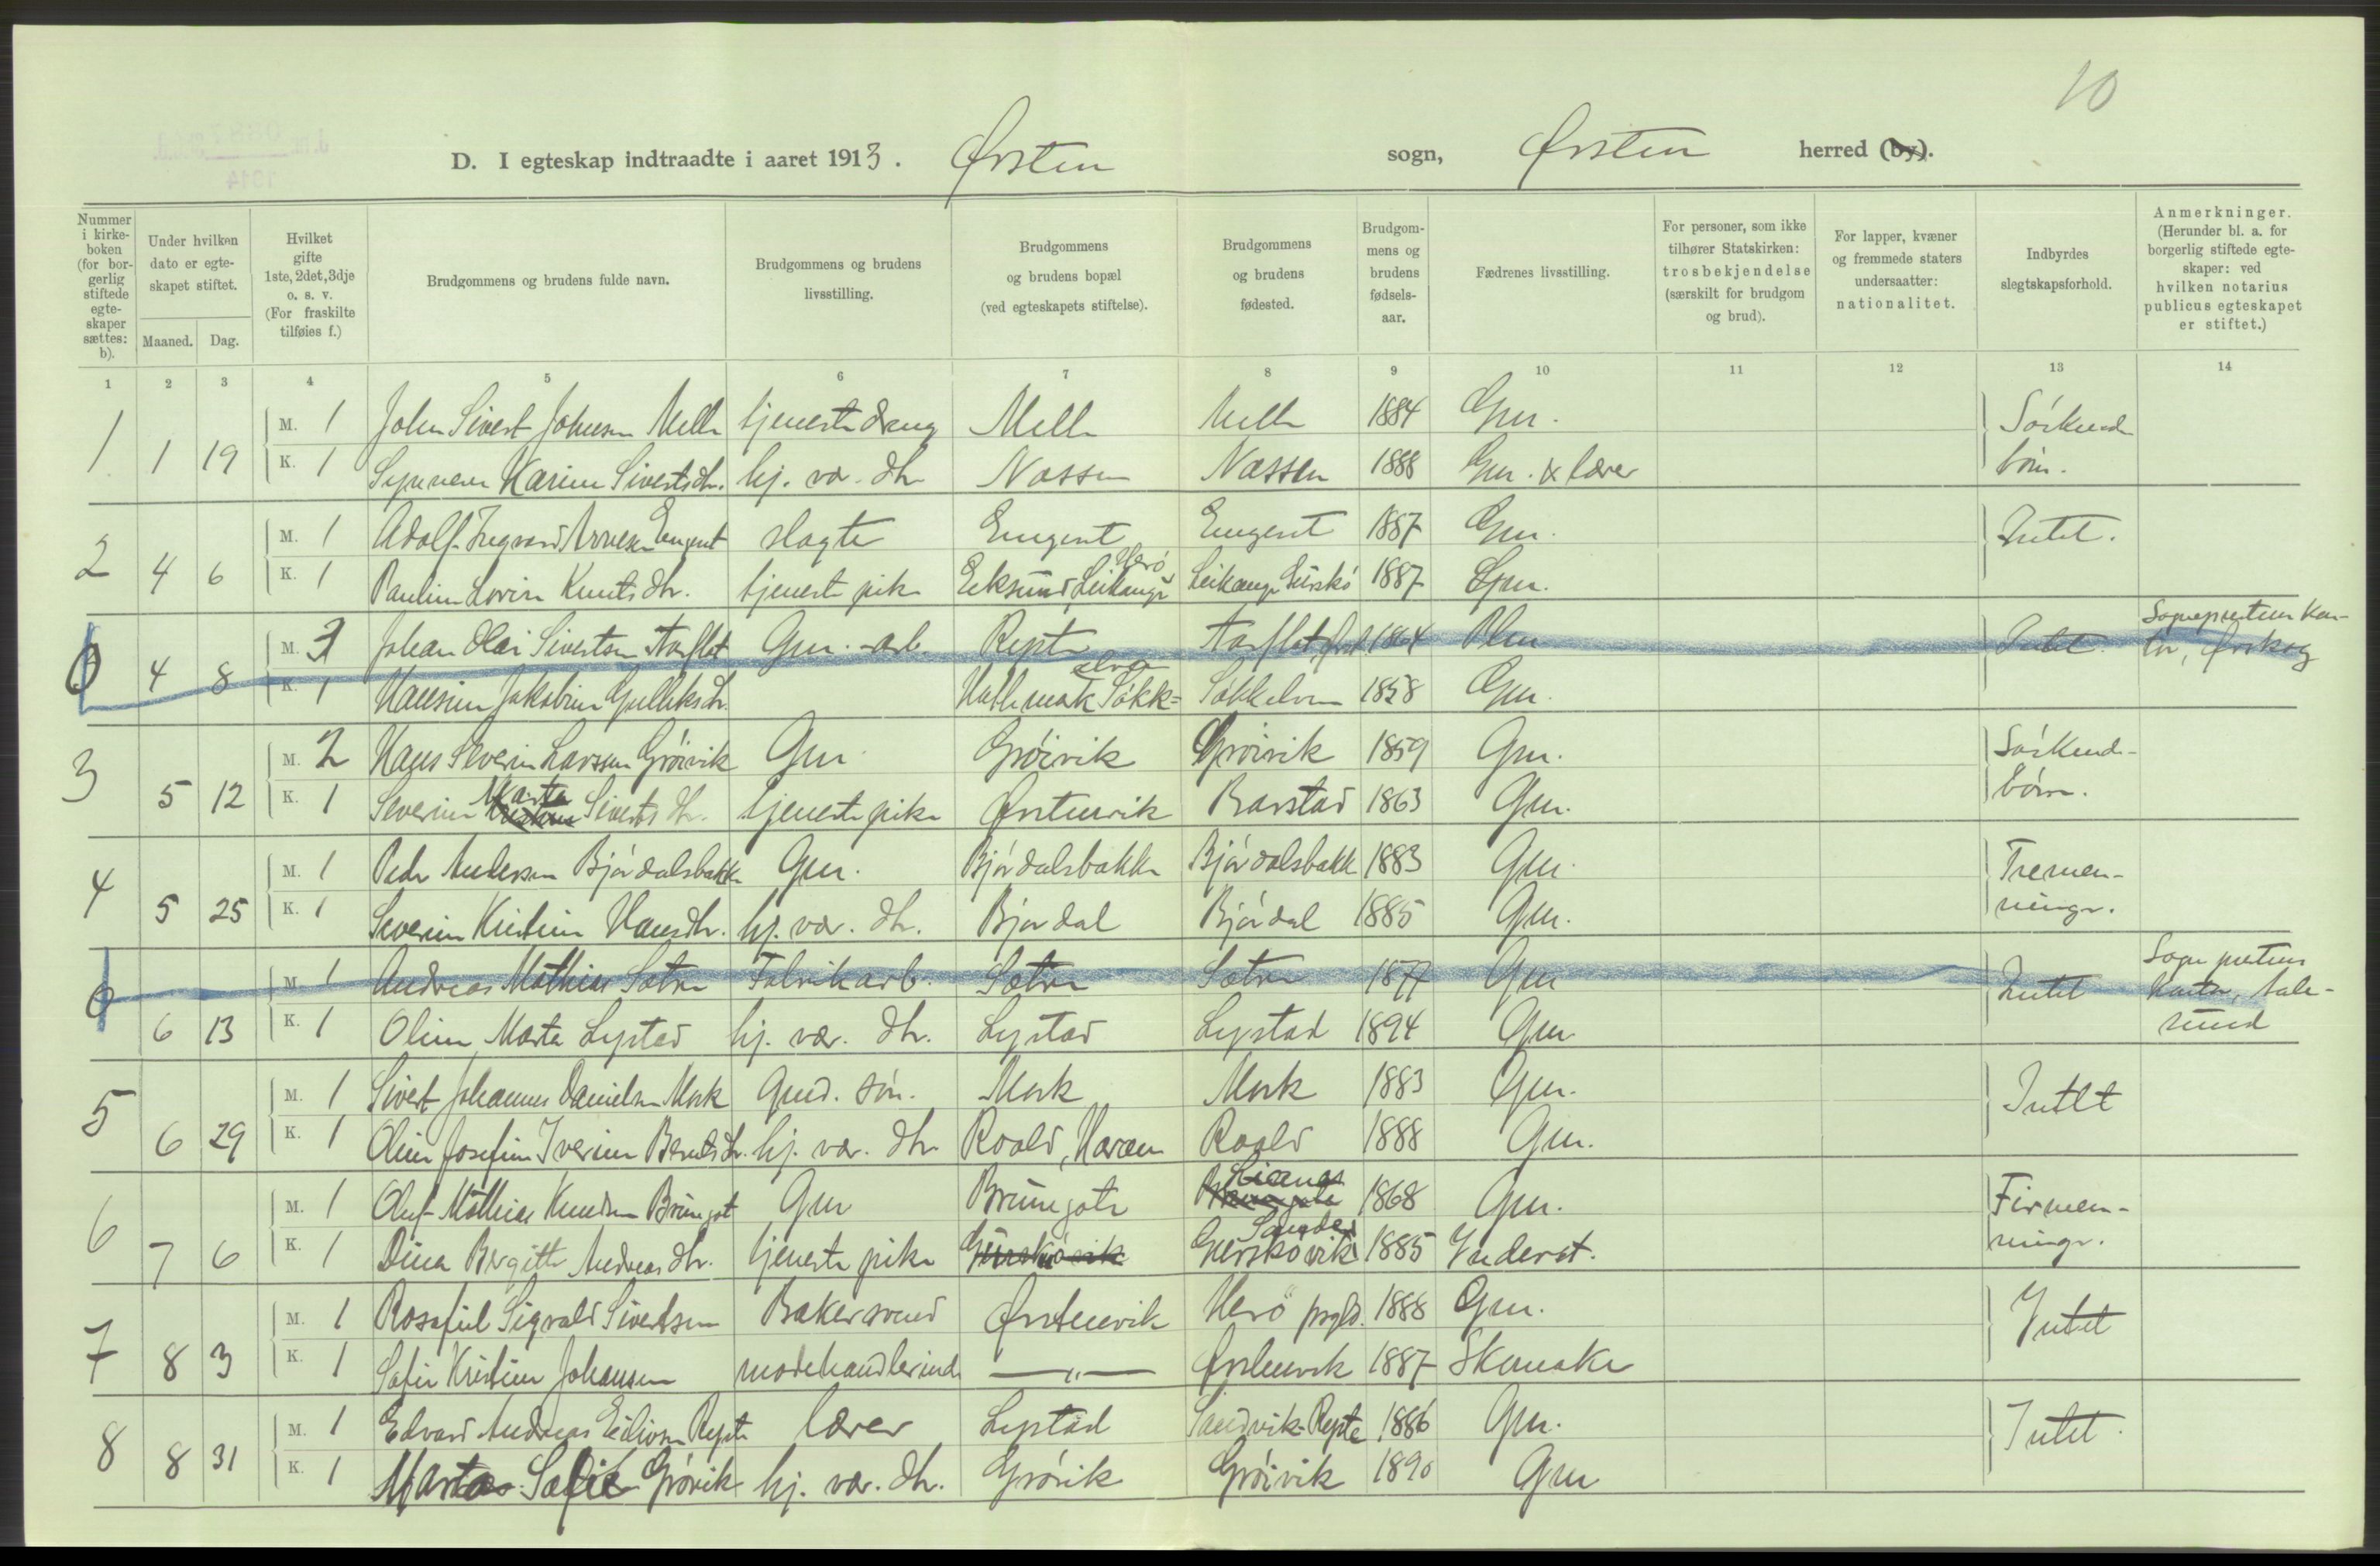 10
D. I egteskap indtraadte i aaret 1913. Ørsten sogn, Ørsten herred (by).
Nummer i kirkeboken (for borgerlig stiftede egteskaper sættes: b).
Under hvilken dato er egteskapet stiftet.
Maaned. Dag.
Hvilket gifte 1ste, 2det, 3dje o. s. v. (For fraskilte tilføies f.)
Brudgommens og brudens fulde navn.
Brudgommens og brudens livsstilling.
Brudgommens og brudens bopæl (ved egteskapets stiftelse).
Brudgommens og brudens fødested.
Brudgommens og brudens fødselsaar.
Fædrenes livsstilling.
For personer, som ikke tilhører Statskirken: trosbekjendelse (særskilt for brudgom og brud).
For lapper, kvæner og fremmede staters undersaatter: nationalitet.
Indbyrdes slegtskapsforhold.
Anmerkninger. (Herunder bl. a. for borgerlig stiftede egteskaper: ved hvilken notarius publicus egteskapet er stiftet.)
1 2 3 4 5 6 7 8 9 10 11 12 13 14
1 1 19 M. 1 John Sivert Johnsen Melle tjenestedreng Melle Melle 1884 Gm. Söskende-
K. 1 Synneve Karine Sivertsdtr. hj. vær. dtr Nassen Nassen 1888 Gm. & lærer börn.
2 4 6 M. 1 Adolf Ingvard Arnesen Engeset slagter Engeset Engeset 1887 Gm. Intet.
K. 1 Pauline Lovise Knutsdtr. tjenestepike Eiksund Leikanger Herö Leikanger Gurskö 1887 Gm.
0 4 8 M. 3 Johan Olai Sivertsen Aarflot Gm. - arb. Repte Aarflot, 1864 Intet. Sogneprestens Kon-
tor, Ørskog
K. 1 Hansine Jakobine Gulliksdtr. Hathemark Sökk=elven Sökkelven 1858 Gm.
3 5 12 M. 2 Hans Severin Larssen Gröivik Gm Gröivik Gröivik 1859 Gm. Söskende-
K. 1 Severine Marta Sivertsdtr. tjenestepike Ørstenvik Barstad 1863 Gm. börn.
4 5 25 M. 1 Peder Andersen Björdalsbakke Gm. Björdalsbakke Björdalsbakke 1883 Gm. Tremen-
K. 1 Severine Kristine Hansdtr. hj. vær. dtr. Björdal Björdal 1885 Gm. ninger.
0 6 13 M. 1 Andreas Mathias Sætre Fabrikarb. Sætre Sætre 1877 Gm Intet Sogneprestens
Kontor, Aale-
K. 1 Oline Marta Lystad hj. vær. dtr. Lystad Lystad 1894 Gm sund
5 6 29 M. 1 Sivert Johannes Danielsen Mork Gmd. sön. Mork Mork 1883 Gm. Intet
K. 1 Oline Josefine Iverine Berntsdtr. hj. vær. dtr Roald, Haram Roald 1888 Gm.
6 7 6 M. 1 Oluf Mathias Knudsen Brungot Gm Brungote 1868 Gm. Firmen-
K. 1 Dina Bergitte Andreasdtr. tjenestepike Gurskövik Gurskövik Sande 1885 Inderst. ninger.
7 8 3 M. 1 Rosefiel Sigvald Sivertsen Bakersvend Ørstenvik Herö prgld. 1888 Gm. Intet
K. 1 Sofie Kristine Johansen modehandlerinde —„— Ørstenvik 1887 Skomaker
8 8 31 M. 1 Edvard Andreas Eilivsen Repte lærer Lystad Sandvik-Repte 1886 Gm. Intet.
K. 1 Marta Sofie Grövik hj. vær. dtr. Grövik Gröivik 1890 Gm